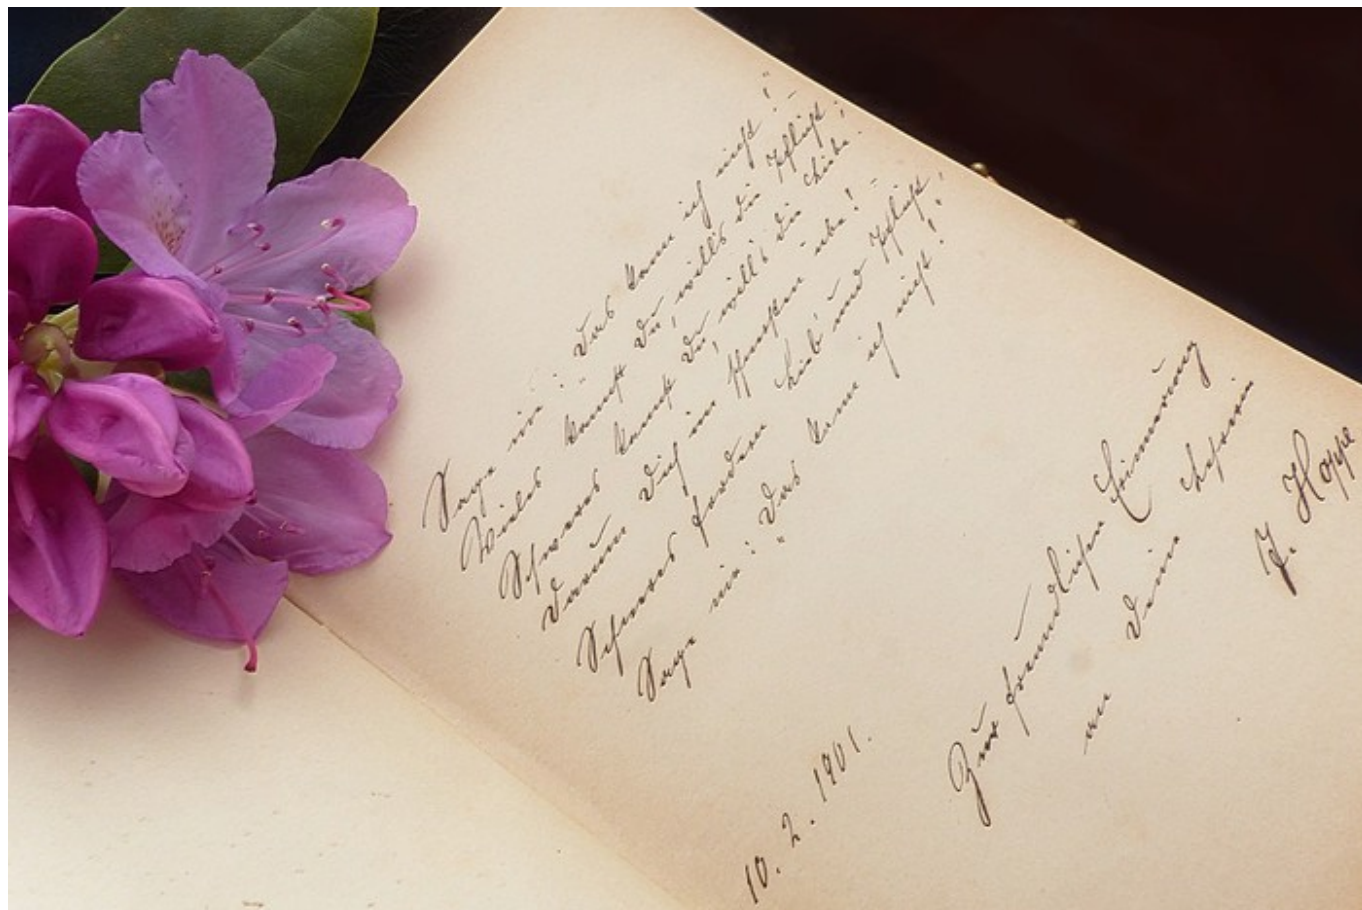 Sage nie: „Das kann ich nicht!" –
Vieles kannst Du, will's die Pflicht;
Schweres kannst Du, will's die Liebe.
Darum Dich im Schwersten übe! –
Schweres fordern Lieb' und Pflicht;
Sage nie: „Das kann ich nicht!"
10. 2. 1901.
Zur freundlichen Erinnerung
an Deine
J. Hoppe